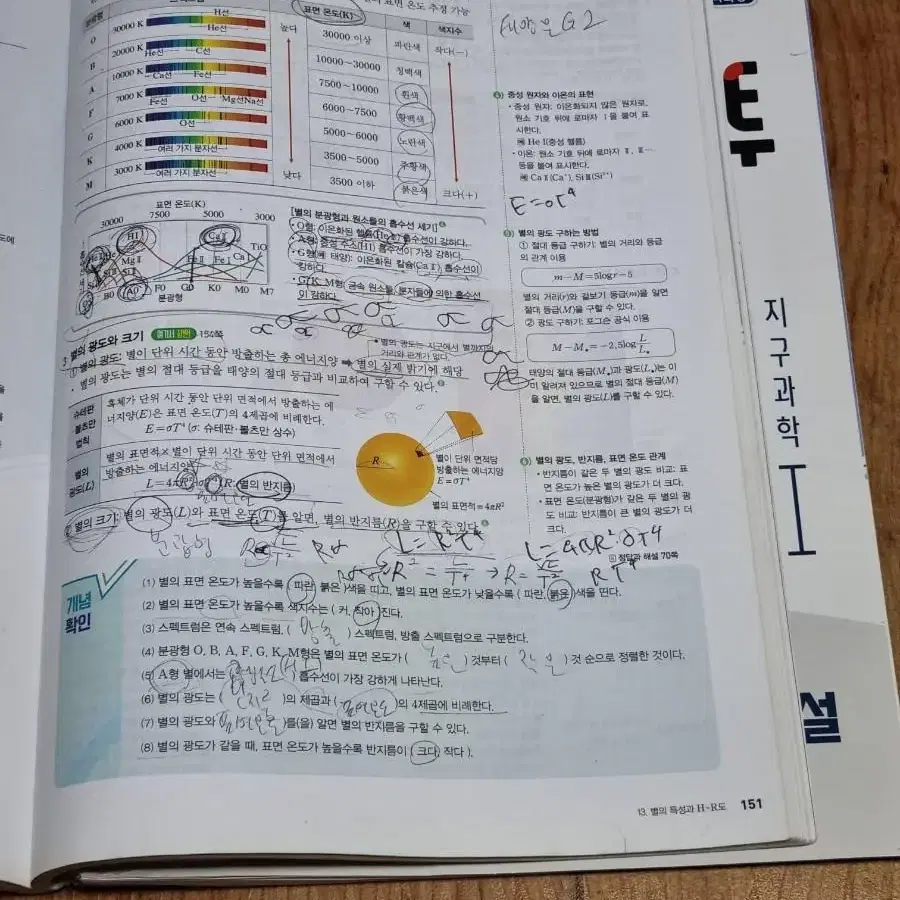 표면 온도 추정 가능
분광형
표면 온도(K)
색
색지수
O
30000 K
H선
He선
높다
30000 이상
파란색
작다(-)
B
20000 K
He선
C선
10000~30000
청백색
A
10000 K
Ca선
Fe선
7500~10000
흰색
F
7000 K
Fe선
O선
Mg선Na선
6000~7500
황백색
G
6000 K
O선
5000~6000
노란색
K
4000 K
여러 가지 분자선
3500~5000
주황색
M
3000 K
여러 가지 분자선
낮다
3500 이하
붉은색
크다(+)
태양은 G2
중성 원자와 이온의 표현
• 중성 원자: 이온화되지 않은 원자로,
원소 기호 뒤에 로마자 Ⅰ을 붙여 표
시한다.
예 He Ⅰ(중성 헬륨)
• 이온: 원소 기호 뒤에 로마자 Ⅱ, Ⅲ…
등을 붙여 표시한다.
예 Ca Ⅱ(Ca⁺), Si Ⅲ(Si²⁺)
E=σT⁴
표면 온도(K)
30000 7500 5000 3000
H Ⅰ
Ca Ⅱ
TiO
Mg Ⅱ
Fe Ⅱ
Fe Ⅰ
Ca Ⅰ
B0 A0 F0 G0 K0 M0 M7
분광형
[별의 분광형과 원소들의 흡수선 세기]
• O형: 이온화된 헬륨(He Ⅱ) 흡수선이 강하다.
• A형: 중성 수소(H Ⅰ) 흡수선이 가장 강하다.
• G형(예 태양): 이온화된 칼슘(Ca Ⅱ) 흡수선이
강하다.
• G, K, M형: 금속 원소들, 분자들에 의한 흡수선
이 강하다.
별의 광도 구하는 방법
① 절대 등급 구하기: 별의 거리와 등급
의 관계 이용
m-M=5logr-5
별의 거리(r)와 겉보기 등급(m)을 알면
절대 등급(M)을 구할 수 있다.
② 광도 구하기: 포그슨 공식 이용
M-M⊙=-2.5log L/L⊙
태양의 절대 등급(M⊙)과 광도(L⊙)는 이
미 알려져 있으므로 별의 절대 등급(M)
을 알면, 별의 광도(L)를 구할 수 있다.
3 별의 광도와 크기 154쪽
• 별의 광도는 지구에서 별까지의
거리와 관계가 없다.
① 별의 광도: 별이 단위 시간 동안 방출하는 총 에너지양 ➡ 별의 실제 밝기에 해당
• 별의 광도는 별의 절대 등급을 태양의 절대 등급과 비교하여 구할 수 있다.
슈테판·
볼츠만
법칙
흑체가 단위 시간 동안 단위 면적에서 방출하는 에
너지양(E)은 표면 온도(T)의 4제곱에 비례한다.
E=σT⁴ (σ: 슈테판·볼츠만 상수)
별의
광도(L)
별의 표면적×별이 단위 시간 동안 단위 면적에서
방출하는 에너지양
L=4πR²·σT⁴ (R: 별의 반지름)
R
별이 단위 면적당
방출하는 에너지양
E=σT⁴
별의 표면적=4πR²
별의 광도, 반지름, 표면 온도 관계
• 반지름이 같은 두 별의 광도 비교: 표
면 온도가 높은 별의 광도가 더 크다.
• 표면 온도(분광형)가 같은 두 별의 광
도 비교: 반지름이 큰 별의 광도가 더
크다.
② 별의 크기: 별의 광도(L)와 표면 온도(T)를 알면, 별의 반지름(R)을 구할 수 있다.
분광형
L=R²T⁴
L=4πR²·σT⁴
R²=L/T⁴→R=√L/T²
정답과 해설 70쪽
개념
확인
(1) 별의 표면 온도가 높을수록 (파란, 붉은)색을 띠고, 별의 표면 온도가 낮을수록 (파란, 붉은)색을 띤다.
(2) 별의 표면 온도가 높을수록 색지수는 (커, 작아)진다.
(3) 스펙트럼은 연속 스펙트럼, ( 방출 ) 스펙트럼, 방출 스펙트럼으로 구분한다.
(4) 분광형 O, B, A, F, G, K, M형은 별의 표면 온도가 ( 높은 )것부터 ( 낮은 )것 순으로 정렬한 것이다.
(5) A형 별에서는 ( 중성수소(HⅠ) ) 흡수선이 가장 강하게 나타난다.
(6) 별의 광도는 ( 반지름 )의 제곱과 ( 표면온도 )의 4제곱에 비례한다.
(7) 별의 광도와 ( 표면온도 )를(을) 알면 별의 반지름을 구할 수 있다.
(8) 별의 광도가 같을 때, 표면 온도가 높을수록 반지름이 (크다, 작다).
13. 별의 특성과 H-R도 151
지구과학Ⅰ
설